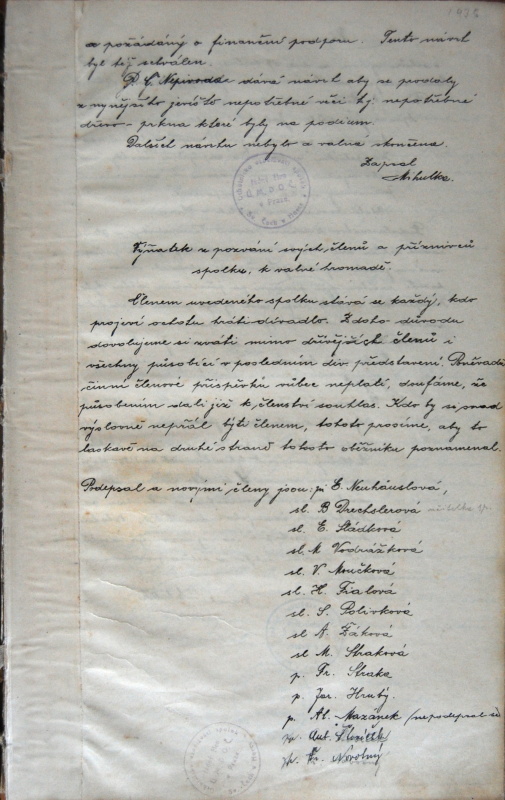 a požádáný o finanční podporu. Tento návrh
byl též schválen.
P. Č. Nepivodde dává návrh aby se prodaly
z nynějšího jeviště nepotřebné věci tj. nepotřebné
dřevo - prkna které byly na podium.
Dalších návrhu nebylo a valná skončena.
Zapsal
Mihulka.
Výňatek z pozvání svých členů a příznivců
spolku, k valné hromadě.
Členem uvedeného spolku stává se každý, kdo
projeví ochotu hráti divadlo. Z doho důvodu
dovolujeme si zváti mimo dřívějších členů i
všechny působící v posledním div. představení. Poněvadž
činní členové příspěvku vůbec neplatí, doufáme, že
působením dali již k členství souhlas. Kdo by se snad
výslovně nepřál býti členem, tohoto prosíme, aby to
laskavě na druhé straně tohoto oběžníku poznamenal.
Podepsal a novými členy jsou: pí E. Neuhäuslová,
sl. B Drechslerová
sl. E. Sládková
sl. M Vodrážková
sl. V. Moučková
sl. H. Fialová
sl. S. Polívková
sl A. Žáková
sl M. Straková
p. Fr. Straka
p. Jar. Hrubý.
p. Al. Mazánek (nepodepsal se)
p. Ant.
Novotný